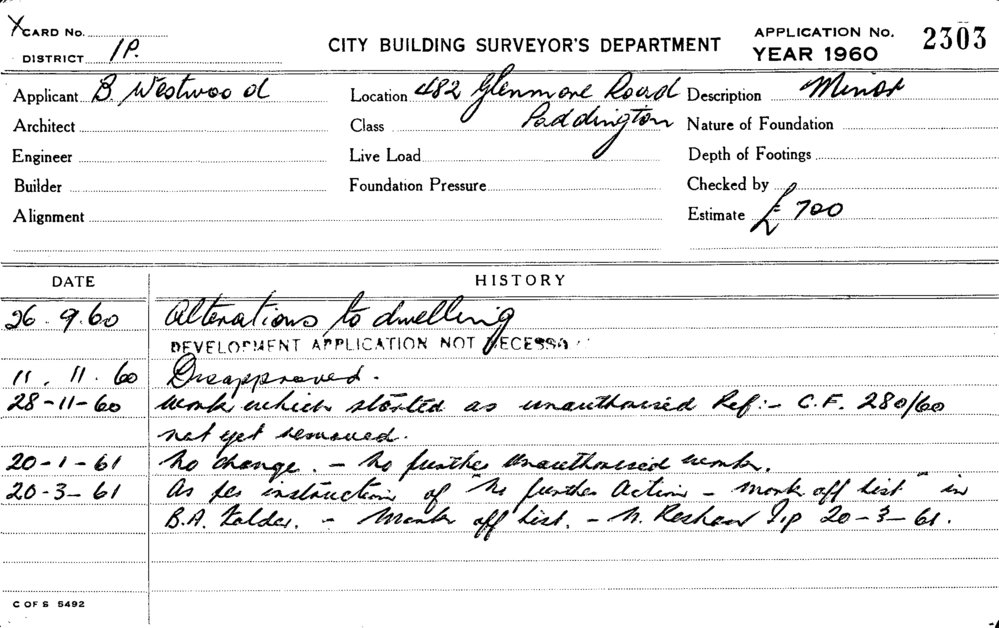 X CARD No.
DISTRICT 1P.
CITY BUILDING SURVEYOR'S DEPARTMENT
APPLICATION No. 2303
YEAR 1960
Applicant B. Westwood Location 482 Glenmore Road Description Minor
Architect Class Paddington Nature of Foundation
Engineer Live Load Depth of Footings
Builder Foundation Pressure Checked by
Alignment Estimate £ 700
DATE HISTORY
26.9.60 Alterations to dwelling
DEVELOPMENT APPLICATION NOT NECESSA
11.11.60 Disapproved.
28-11-60 work which started as unauthorised Ref:- C.F. 280/60
not yet removed.
20-1-61 No change. - No further unauthorised work.
20-3-61 As per instruction of "No further Action - mark off list" in
B.A. Folder. - Mark off list. - 20-3-61.
C OF S 5492